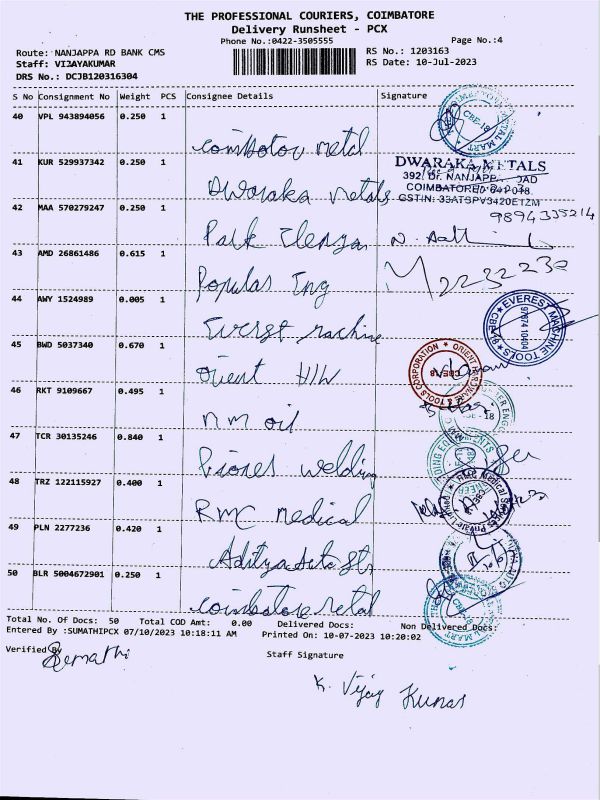 THE PROFESSIONAL COURIERS, COIMBATORE
Delivery Runsheet - PCX
Phone No.:0422-3505555
Page No.:4
Route: NANJAPPA RD BANK CMS
RS No.: 1203163
Staff: VIJAYAKUMAR
RS Date: 10-Jul-2023
DRS No.: DCJB120316304
S No Consignment No Weight PCS Consignee Details Signature
40 VPL 943894056 0.250 1
coimbatore metal
CBE-18
41 KUR 529937342 0.250 1
DWARAKA METALS
392, Dr. NANJAPPA ROAD
COIMBATORE - 641 018
Dwaraka metals
9894335214
42 MAA 570279247 0.250 1
Park
43 AMD 26861486 0.615 1
Popular Eng
44 AWY 1524989 0.005 1
EVEREST MACHINE TOOLS
97874 10404
Everest machine
45 BWD 5037340 0.670 1
ORIENT HARDWARE & TOOLS CORPORATION
CBE-18
Orient H/W
46 RKT 9109667 0.495 1
nm oil
47 TCR 30135246 0.840 1
welding
48 TRZ 122115927 0.400 1
RMC Medical
RMC medical
49 PLN 2277236 0.420 1
Aditya Auto
50 BLR 5004672901 0.250 1
coimbatore metal
Total No. Of Docs: 50 Total COD Amt: 0.00 Delivered Docs: Non Delivered Docs:
Entered By :SUMATHIPCX 07/10/2023 10:18:11 AM Printed On: 10-07-2023 10:20:02
Verified By
Staff Signature
Semathi
K. Vijay Kumar